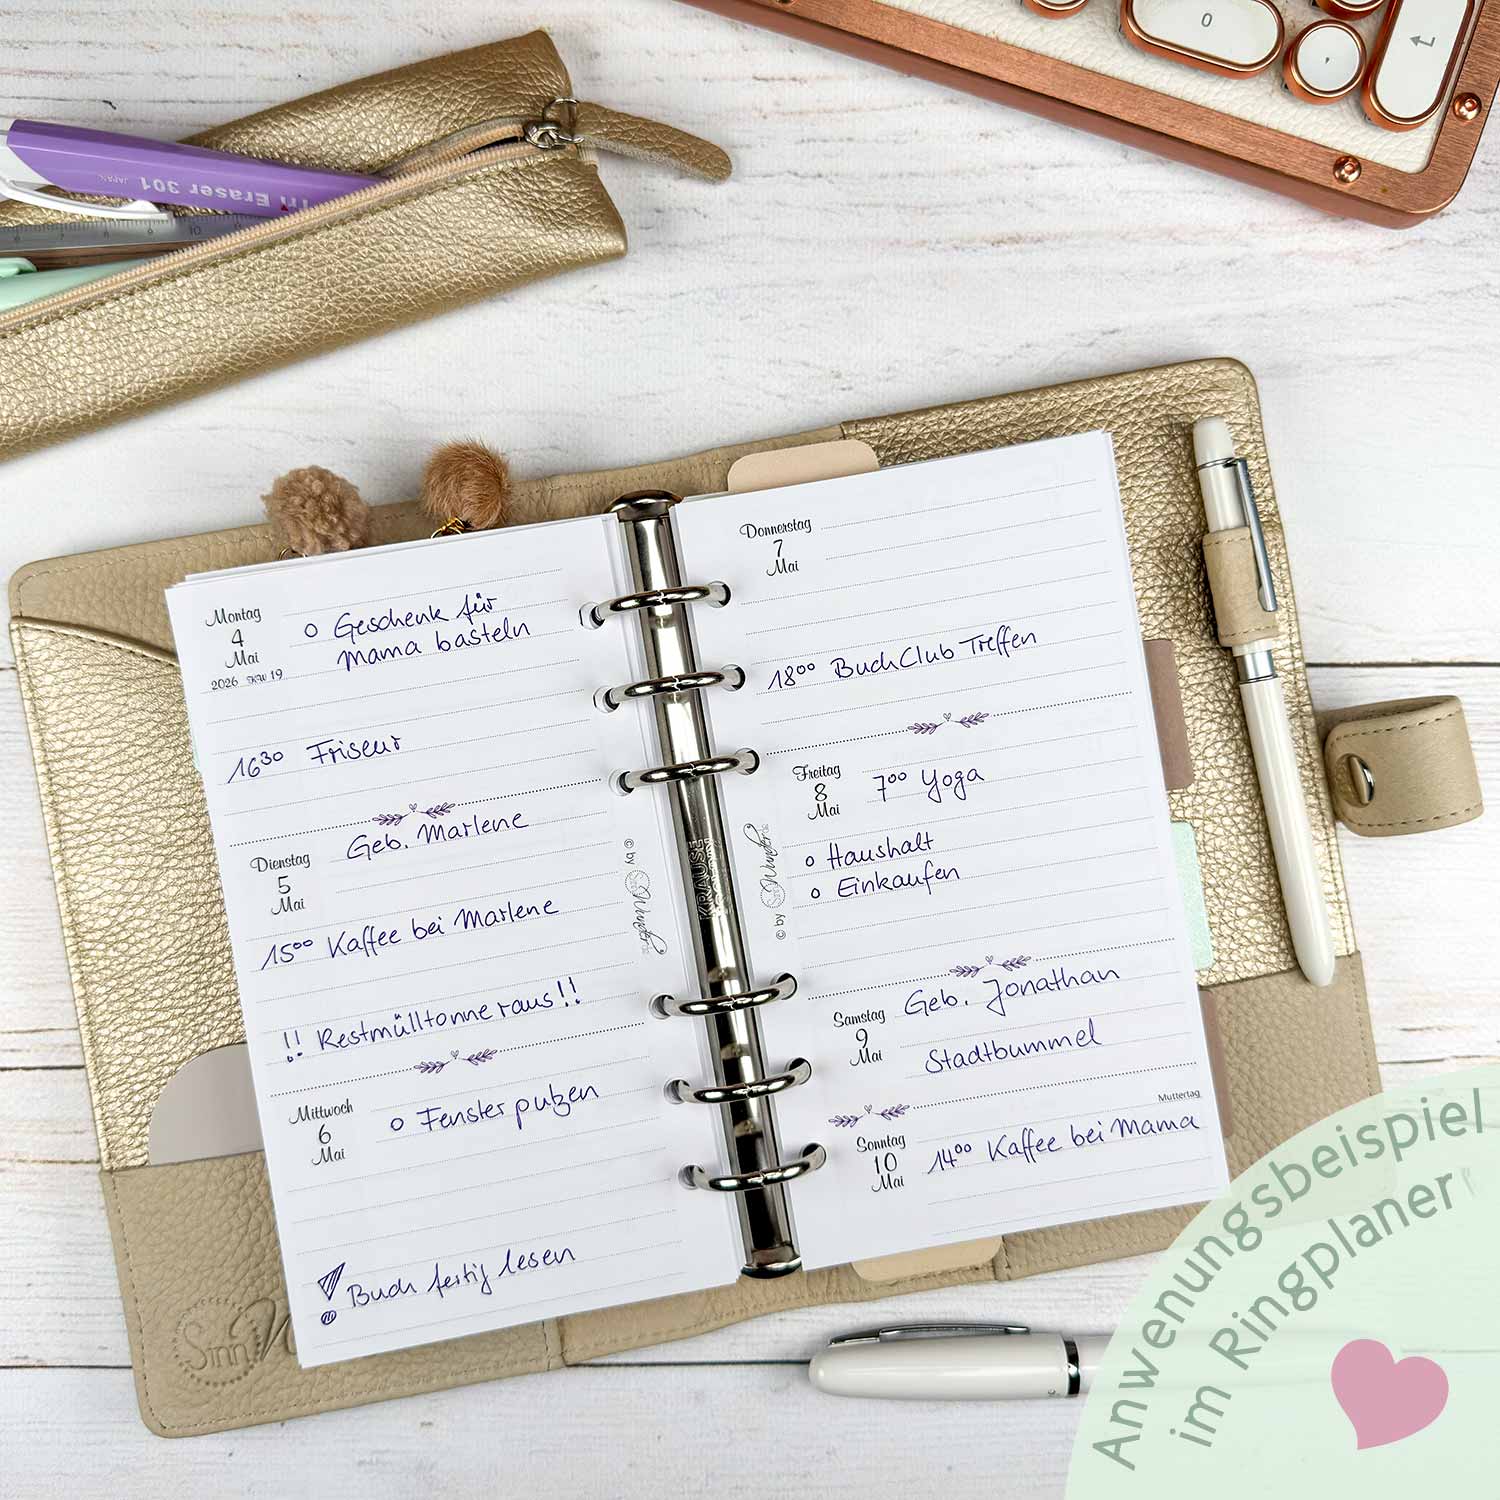 0
Tri Eraser 301
JAPAN
Montag
4
Mai
2026 KW 19
o Geschenk für
Mama basteln
16³⁰ Friseur
Dienstag
5
Mai
Geb. Marlene
15⁰⁰ Kaffee bei Marlene
!! Restmülltonne raus!!
Mittwoch
6
Mai
o Fenster putzen
! Buch fertig lesen
© by SinnWunder.de
KRAUSE
Donnerstag
7
Mai
18⁰⁰ BuchClub Treffen
Freitag
8
Mai
7⁰⁰ Yoga
o Haushalt
o Einkaufen
© by SinnWunder.de
Samstag
9
Mai
Geb. Jonathan
Stadtbummel
Muttertag
Sonntag
10
Mai
14⁰⁰ Kaffee bei Mama
Sinn
Anwenungsbeispiel
im Ringplaner